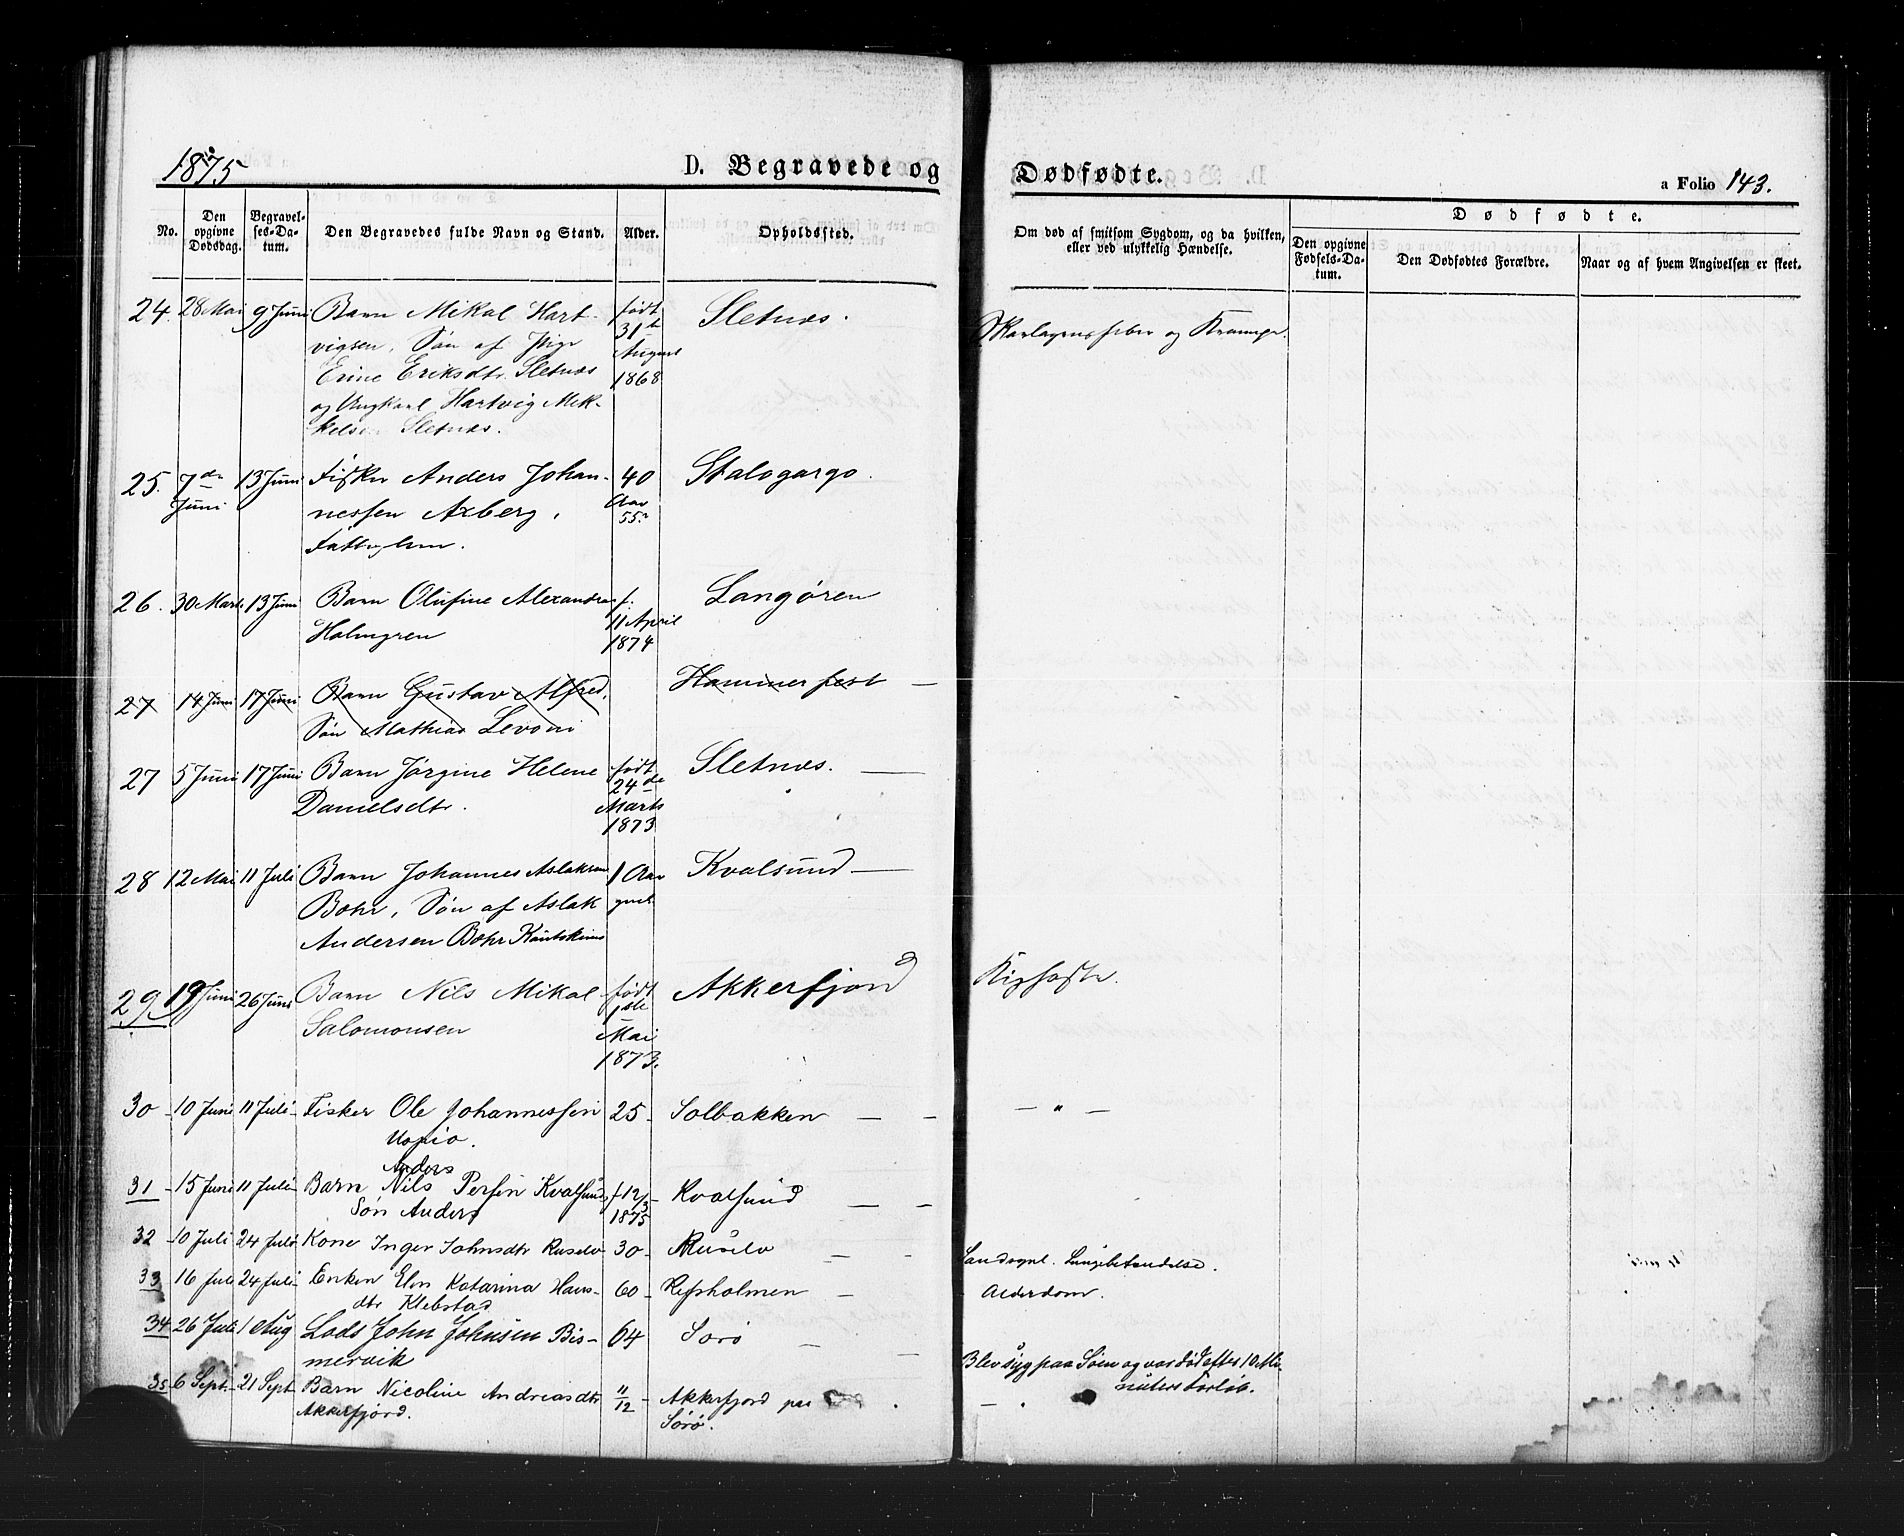 1875
D. Begravede og Dødfødte.
a Folio 143.
No.
Den opgivne Dødsdag.
Begravelses-Datum.
Den Begravedes fulde Navn og Stand.
Alder.
Opholdssted.
Om død af smitsom Sygdom, og da hvilken, eller ved ulykkelig Hændelse.
Dødfødte.
Den opgivne Fødsels-Datum.
Den Dødfødtes Forældre.
Naar og af hvem Angivelsen er skeet.
24. 28 Mai 9 Juni Barn Mikal Hart- født Sletnæs.
vigsen, Søn af Pige 31te
Erine Eriksdtr. Sletnæs August
og Ungkarl Hartvig Mik- 1868
kelsen Sletnæs.
Skarlagensfeber og Krampe.
25. 7de Juni 13 Juni Fisker Anders Johan- 40 Stalogargo.
nessen Axberg, Aar
Fattiglem. 55.
26. 30 Marts 13 Juni Barn Olufine Alexandra f. Langøren
Holmgren 11 April
1874
27 14 Juni 17 Juni Barn Gustav Alfred, Hammerfest —
Søn Mathias Levoni
27 5 Juni 17 Juni Barn Jørgine Helene født Sletnæs. —
Danielsdtr. 24de
Marts
1873
28 12 Mai 11 Juli Barn Johannes Aslaksen 1 Aar Kvalsund —
Bohr, Søn af Aslak gml.
Andersen Bohr Kautokeino
29 19 Juni 26 Juni Barn Nils Mikal født Akkerfjord Kighoste.
Salomonsen 1ste
Mai
1873.
30 — 10 Juni 11 Juli — Fisker Ole Johannessen 25 — Solbakken — — — " —
31 — 15 Juni 11 Juli — Barn Nils Anders Persen Kvalsund, f 12/3 — Kvalsund — —
Søn Anders 1875
32 — 10 Juli 24 Juli Kone Inger Johnsdtr Ruselv 30 — Ruselv — — Lungebetændelse.
33 — 16 Juli 24 Juli — Enken Elen Katarina Hans- 60 — Refsholmen — Alderdom.
dtr Klebstad
34 26 Juli 1 Aug Lods John Johnsen Bis- 64 Sørø — —
mervik
Blev syg paa Søen og var død efter 10 Mi-
nuters Forløb.
35 6 Sept. — 21 Sept Barn Nicoline Andreasdtr 11/12 — Akkerfjord paa
Akkerfjord. Sørø.